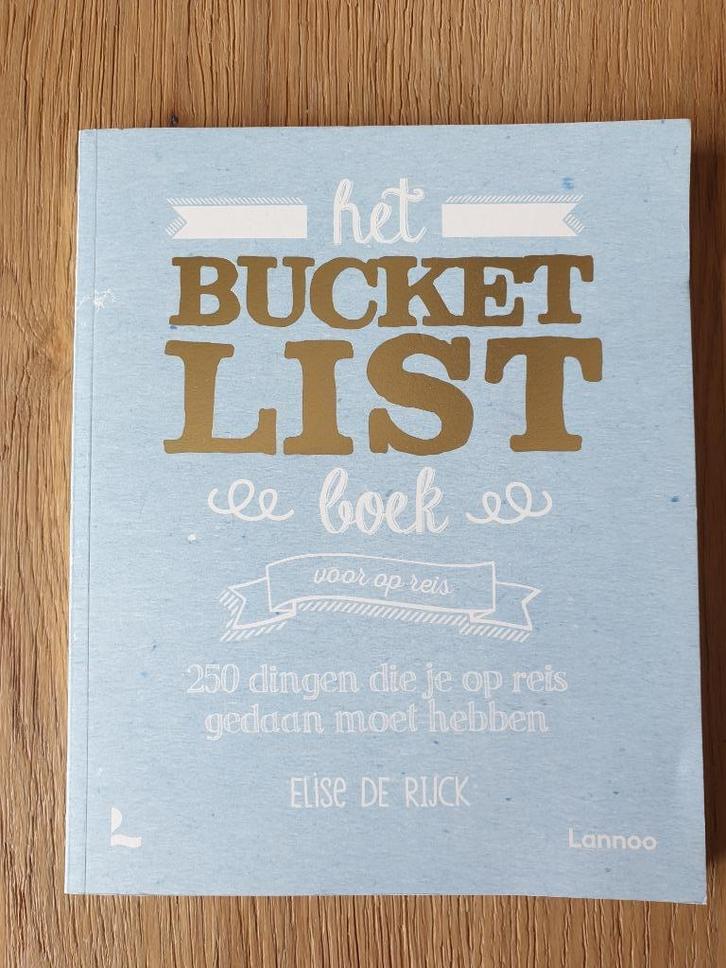 het
BUCKET
LIST
boek
voor op reis
250 dingen die je op reis
gedaan moet hebben
ELISE DE RIJCK
Lannoo